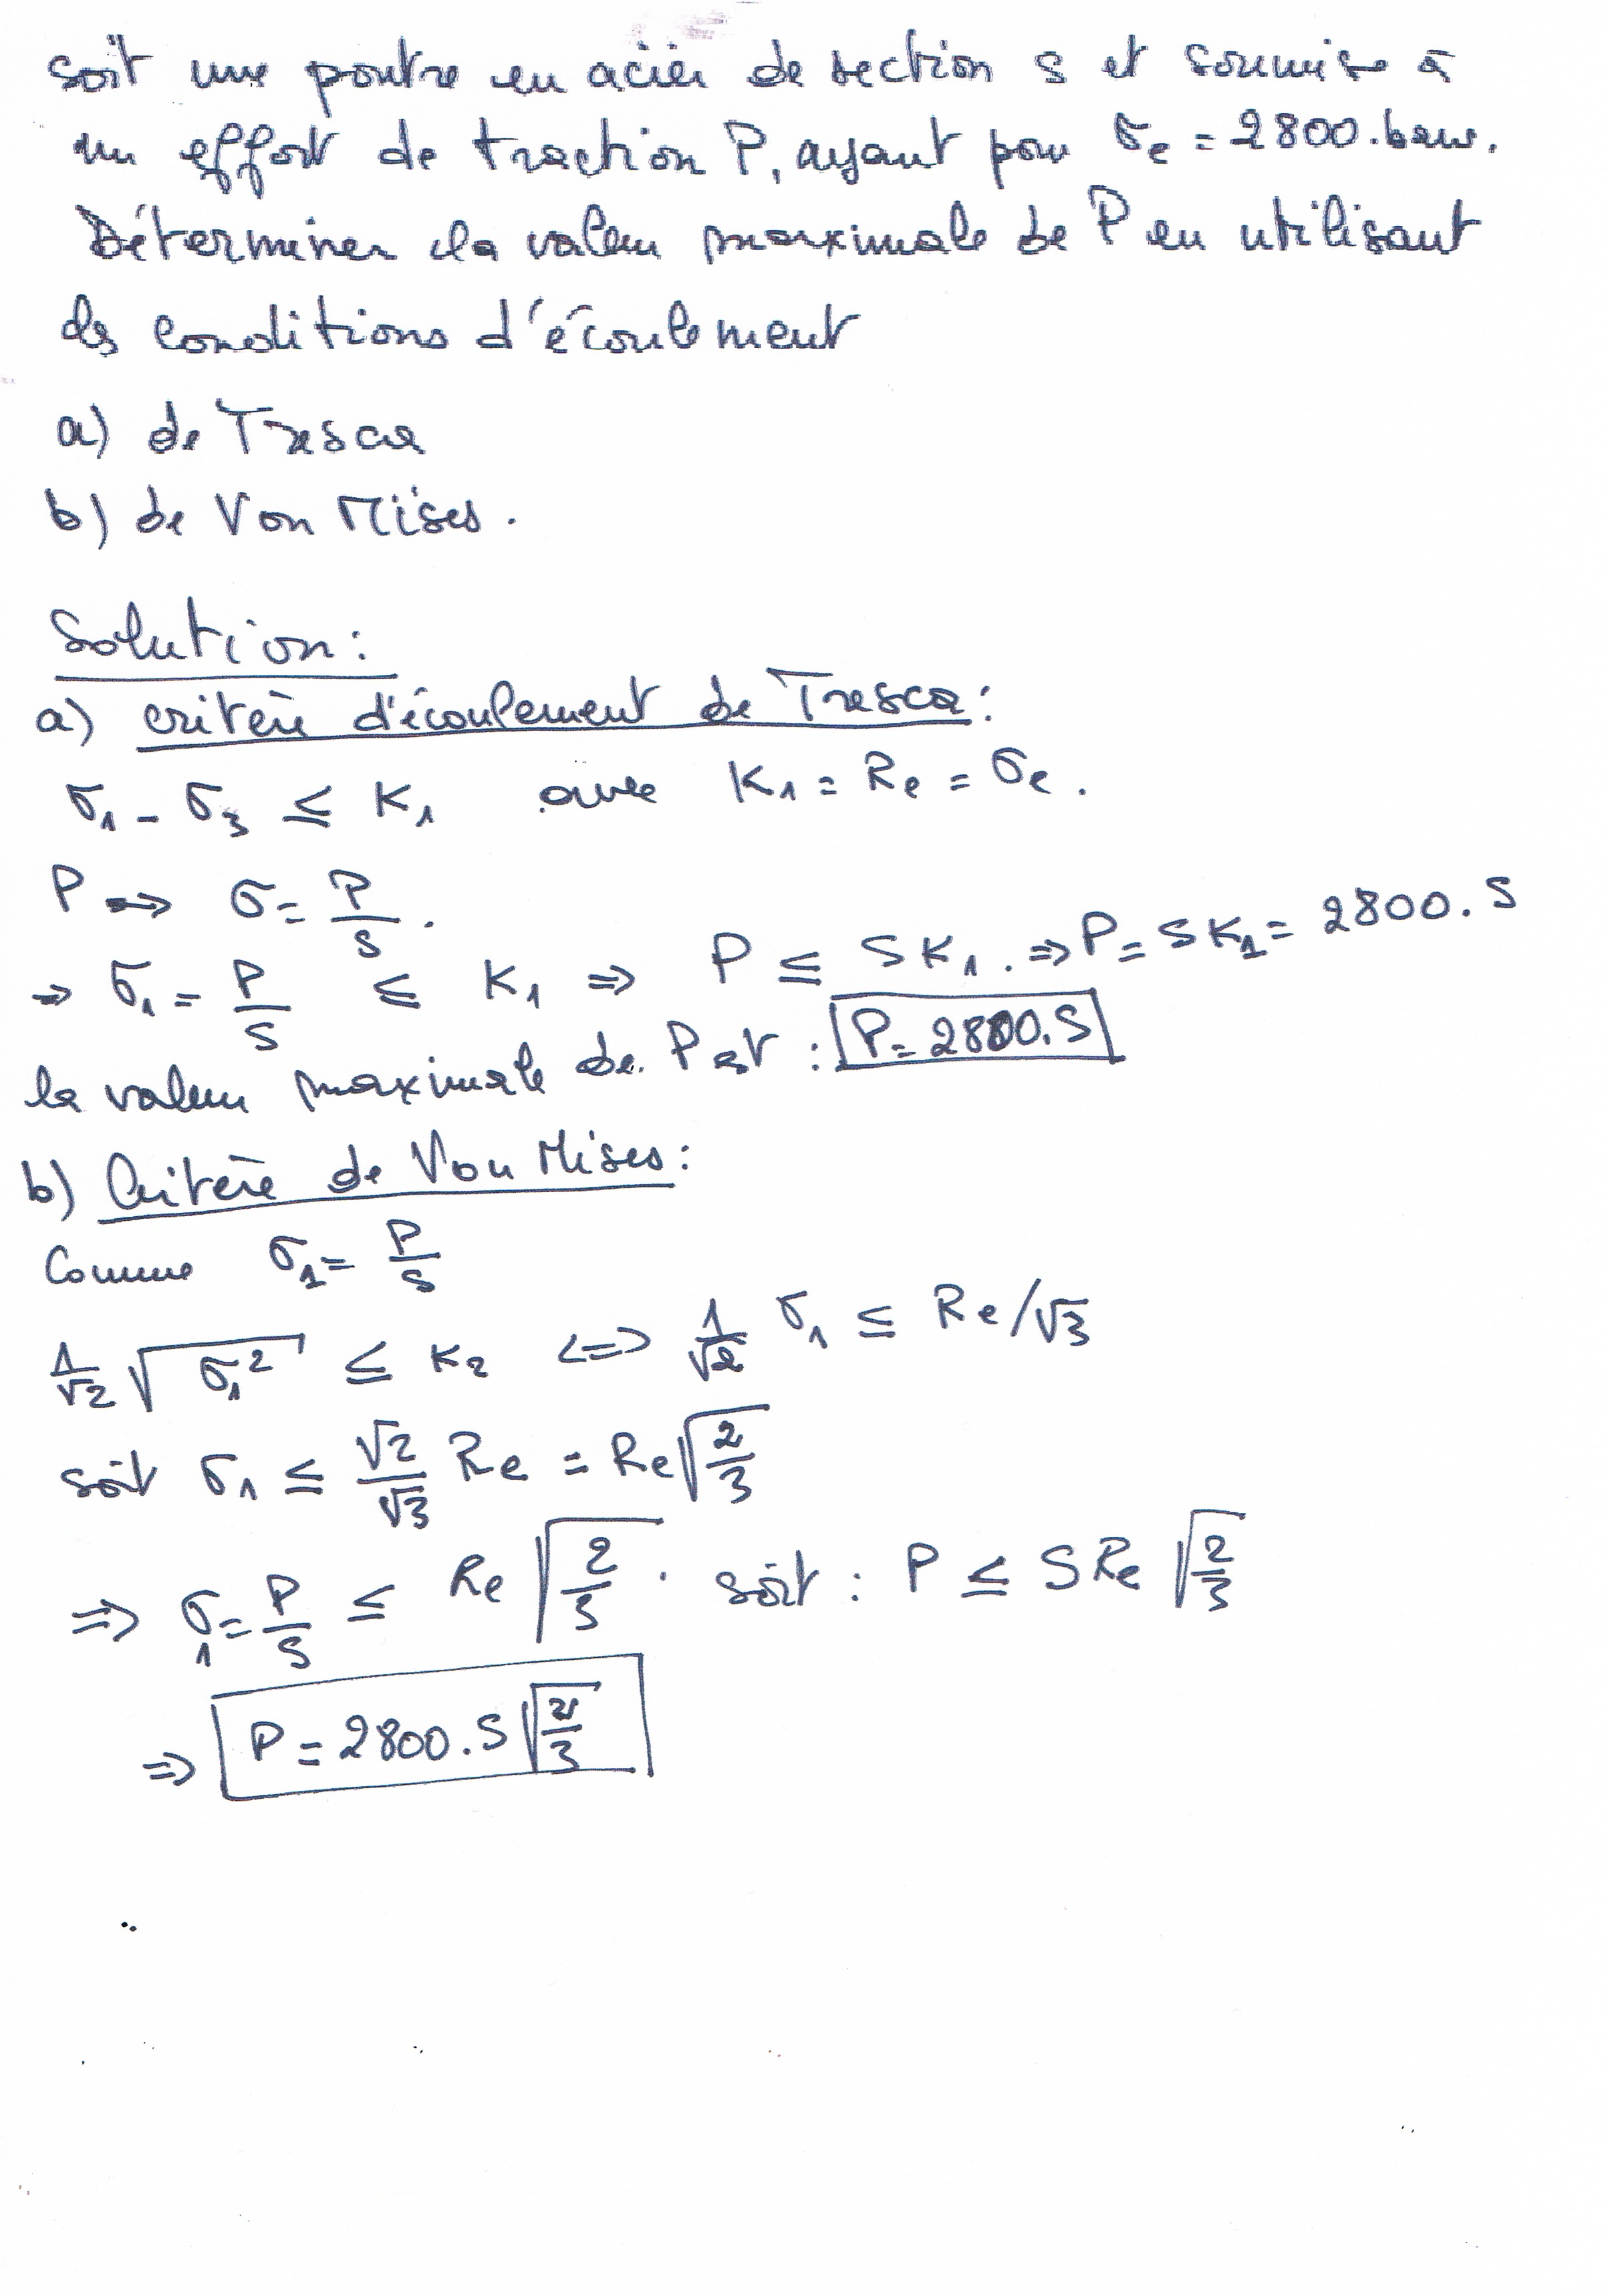 soit une poutre en acier de section S et soumise à
un effort de traction P, ayant pour σe = 2800.bars.
Déterminer la valeur maximale de P en utilisant
les conditions d'écoulement
a) de Tresca
b) de Von Mises.
Solution:
a) critère d'écoulement de Tresca:
σ1 - σ3 ≤ K1 avec K1 = Re = σe.
P → σ = P/S.
⇒ σ1 = P/S ≤ K1 ⇒ P ≤ SK1. ⇒ P = SK1 = 2800.S
la valeur maximale de P est : P = 2800.S
b) Critère de Von Mises:
Comme σ1 = P/S
1/√2 √σ1² ≤ K2 <=> 1/√2 σ1 ≤ Re/√3
soit σ1 ≤ √2/√3 Re = Re√(2/3)
⇒ σ1 = P/S ≤ Re √(2/3). soit : P ≤ S Re √(2/3)
⇒ P = 2800.S √(2/3)